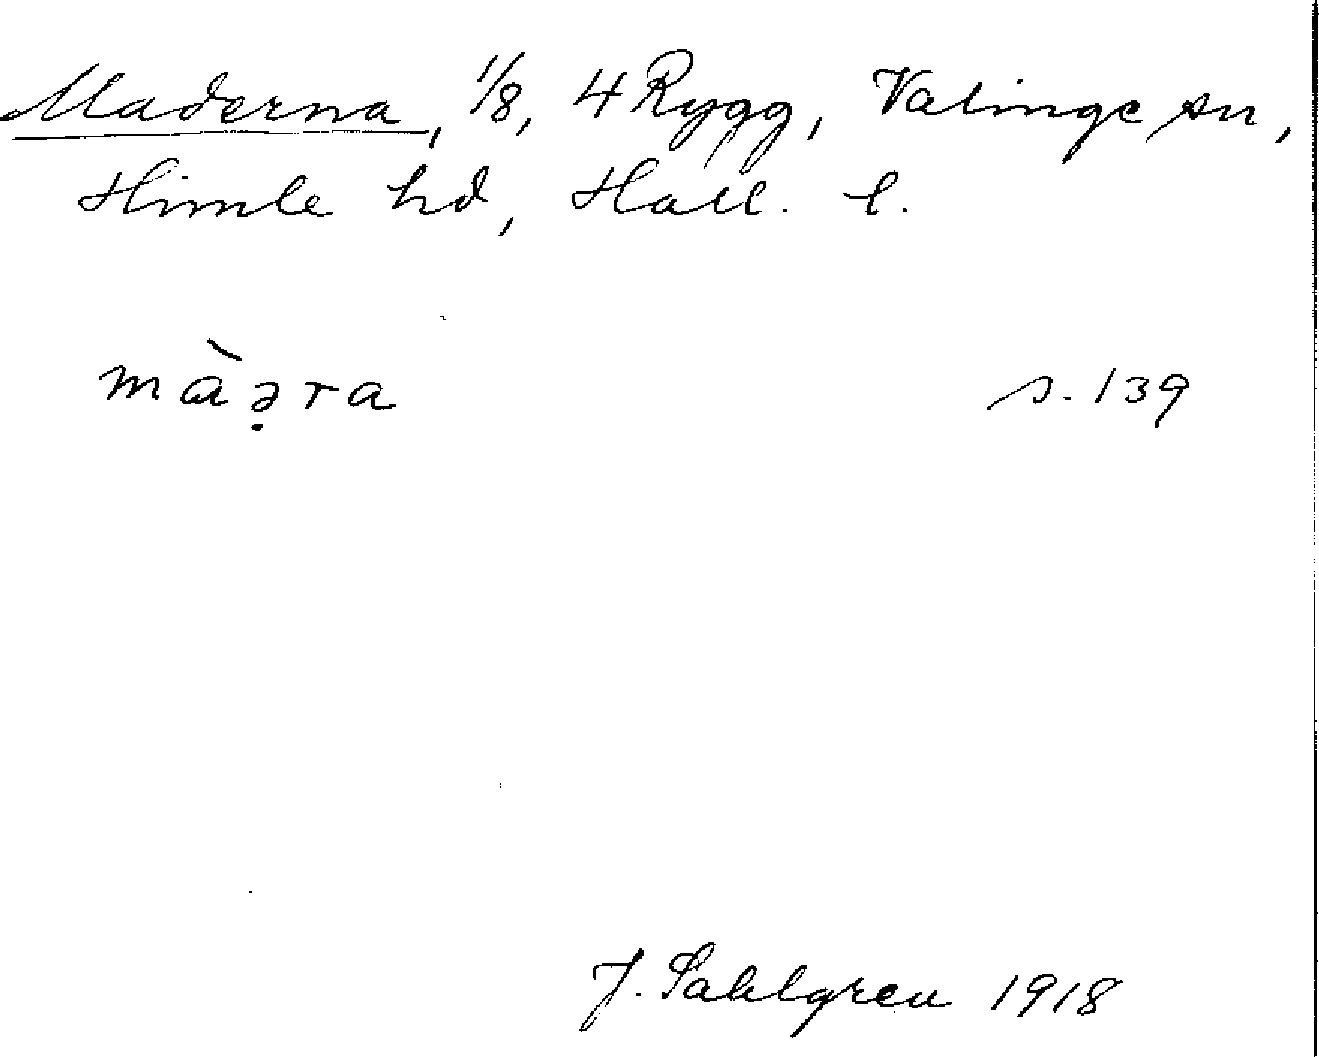 Maderna, 1/8, 4 Rygg, Valinge sn,
Himle hd, Hall. l.
mɑ̀ə̣ra s. 139
J. Sahlgren 1918